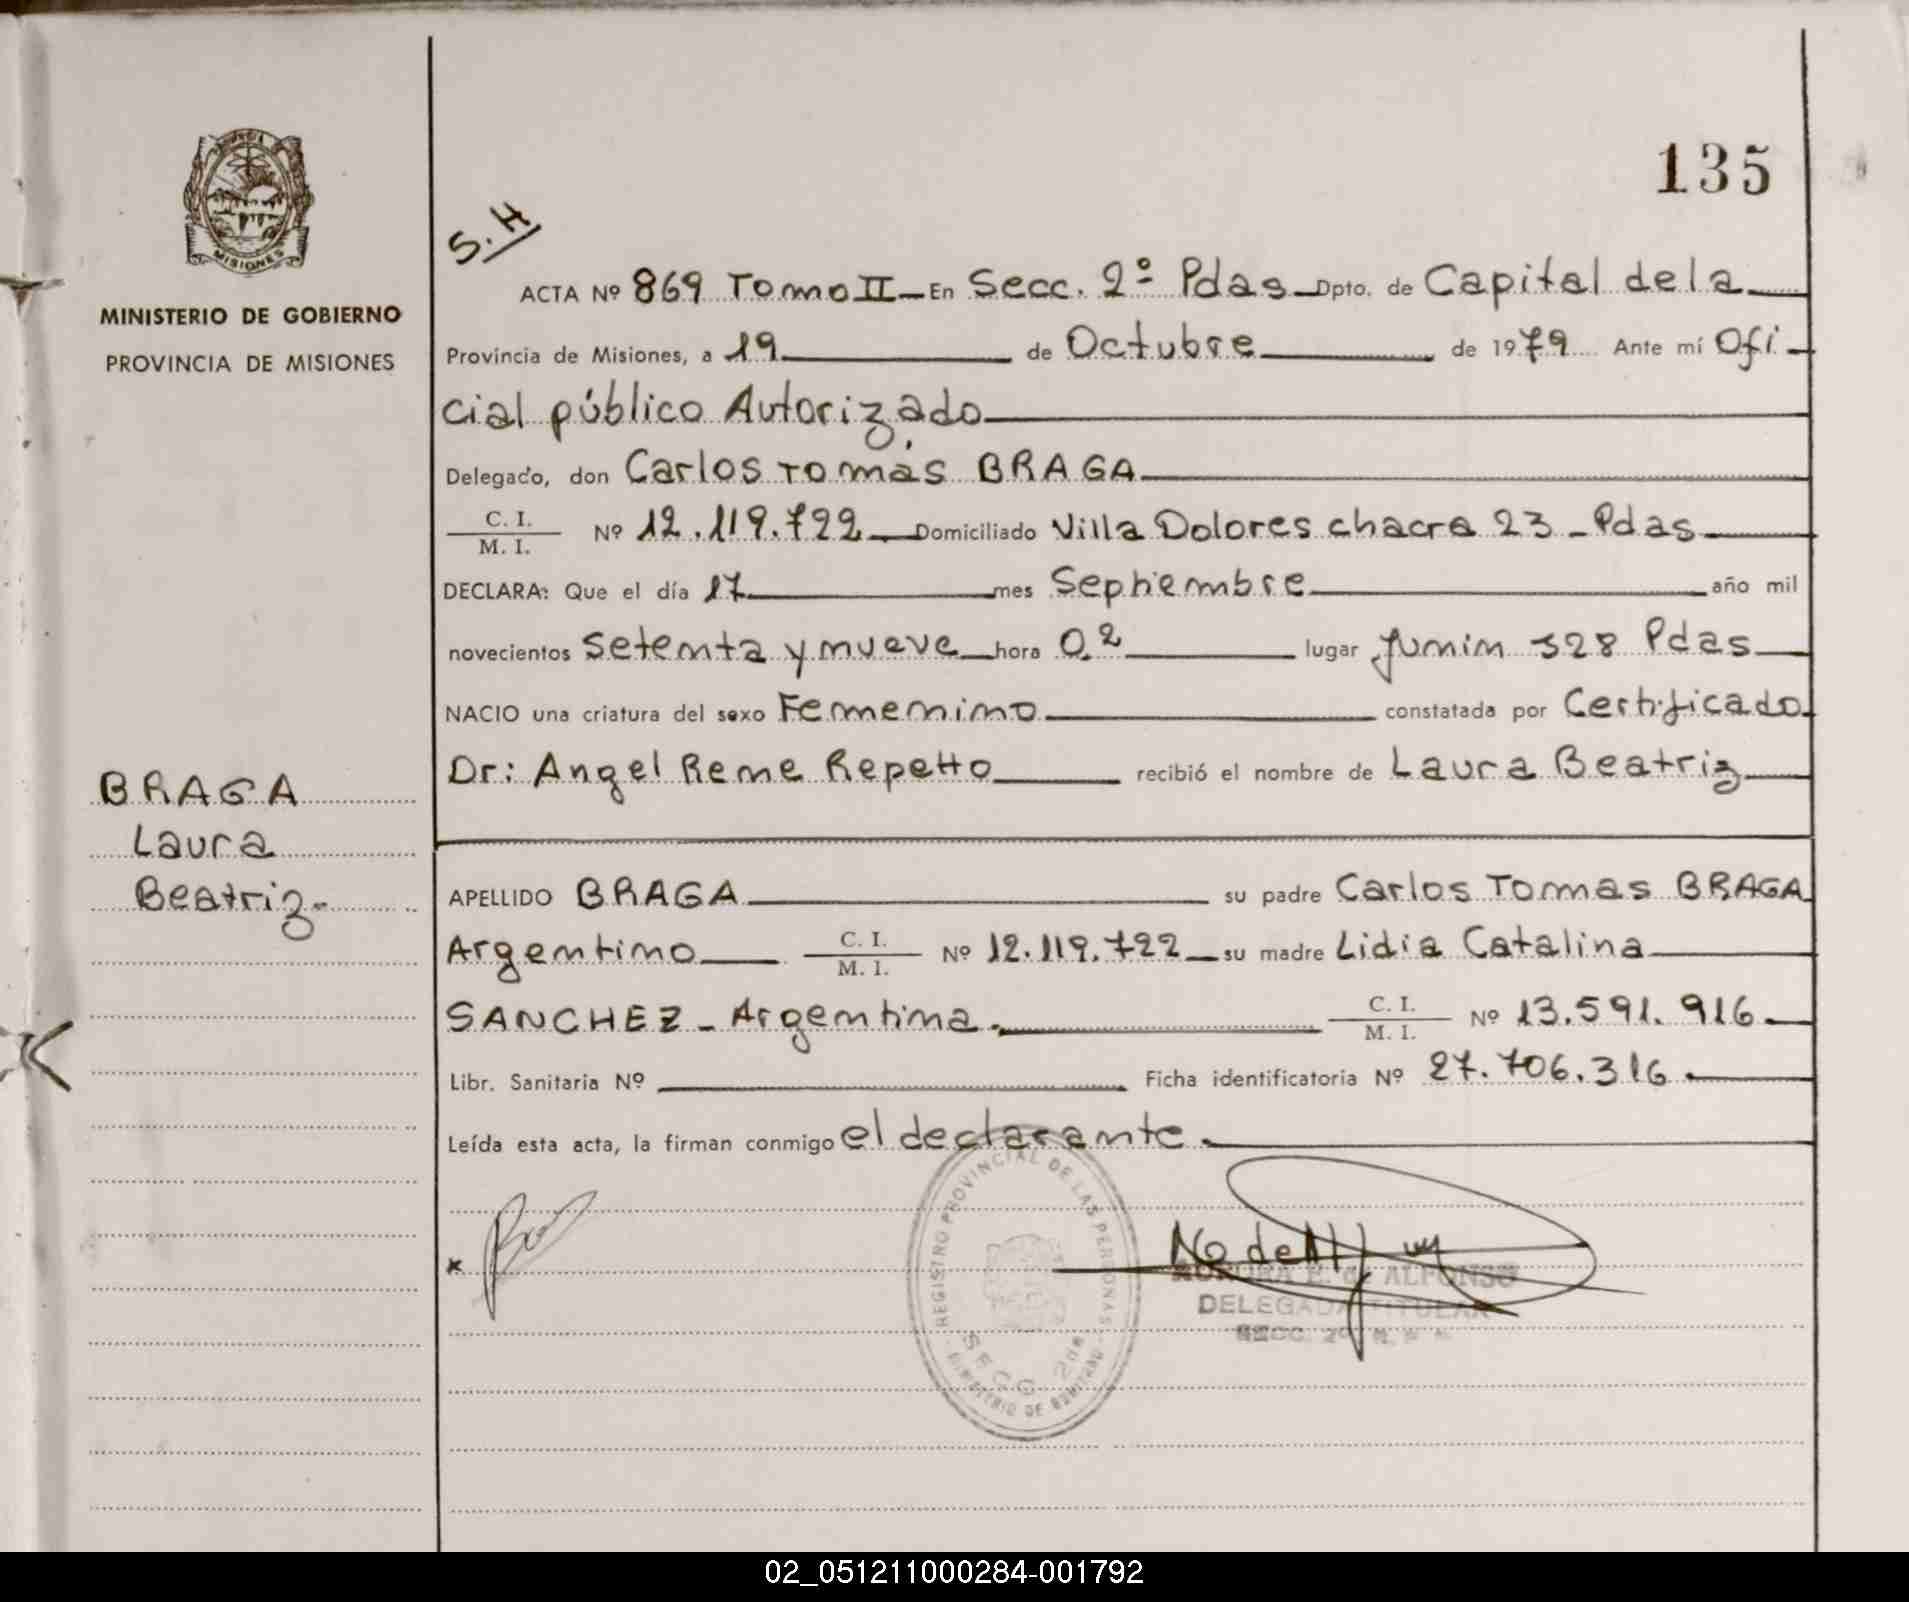 135
S. H
MISIONES
MINISTERIO DE GOBIERNO
PROVINCIA DE MISIONES
ACTA Nº 869 Tomo II - En Secc. 2º Pdas - Dpto. de Capital de la
Provincia de Misiones, a 19 de Octubre de 1979 Ante mí Ofi-
cial público Autorizado
Delegado, don Carlos Tomás BRAGA
C. I.
M. I. Nº 12.119.722 Domiciliado Villa Dolores chacra 23 - Pdas
DECLARA: Que el día 17 mes Septiembre año mil
novecientos setenta y nueve hora 02 lugar Junin 328 Pdas
NACIO una criatura del sexo Femenino constatada por Certificado
Dr: Angel Rene Repetto recibió el nombre de Laura Beatriz
BRAGA
Laura
Beatriz
APELLIDO BRAGA su padre Carlos Tomas BRAGA
Argentino C. I.
M. I. Nº 12.119.722 su madre Lidia Catalina
SANCHEZ - Argentina. C. I.
M. I. Nº 13.591.916
Libr. Sanitaria Nº Ficha identificatoria Nº 27.706.316
Leída esta acta, la firman conmigo el declarante.
REGISTRO PROVINCIAL DE LAS PERSONAS
SECC 2da
MINISTERIO DE GOBIERNO
AURORA E. de ALFONSO
DELEGADA TITULAR
SECC. 2º
02_051211000284-001792